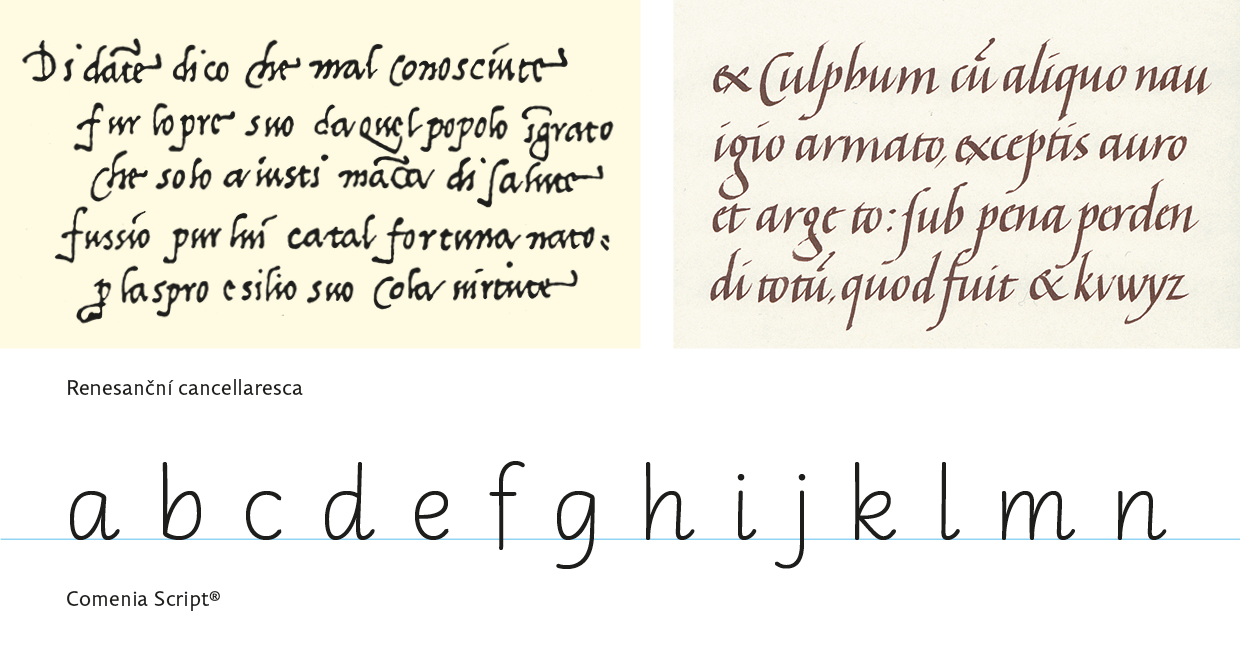 Di dāte dico che mal conosciute
fur lopre suo da quel popolo īgrato
che solo a iusti māca di salute
fussio pur lui catal fortuna nato:
laspro esilio suo cola virtute
& Culphum cū aliquo nau
igio armato, exceptis auro
et arge to: ſub pena perden
di totū, quod fuit & kvwyz
Renesanční cancellaresca
a b c d e f g h i j k l m n
Comenia Script®